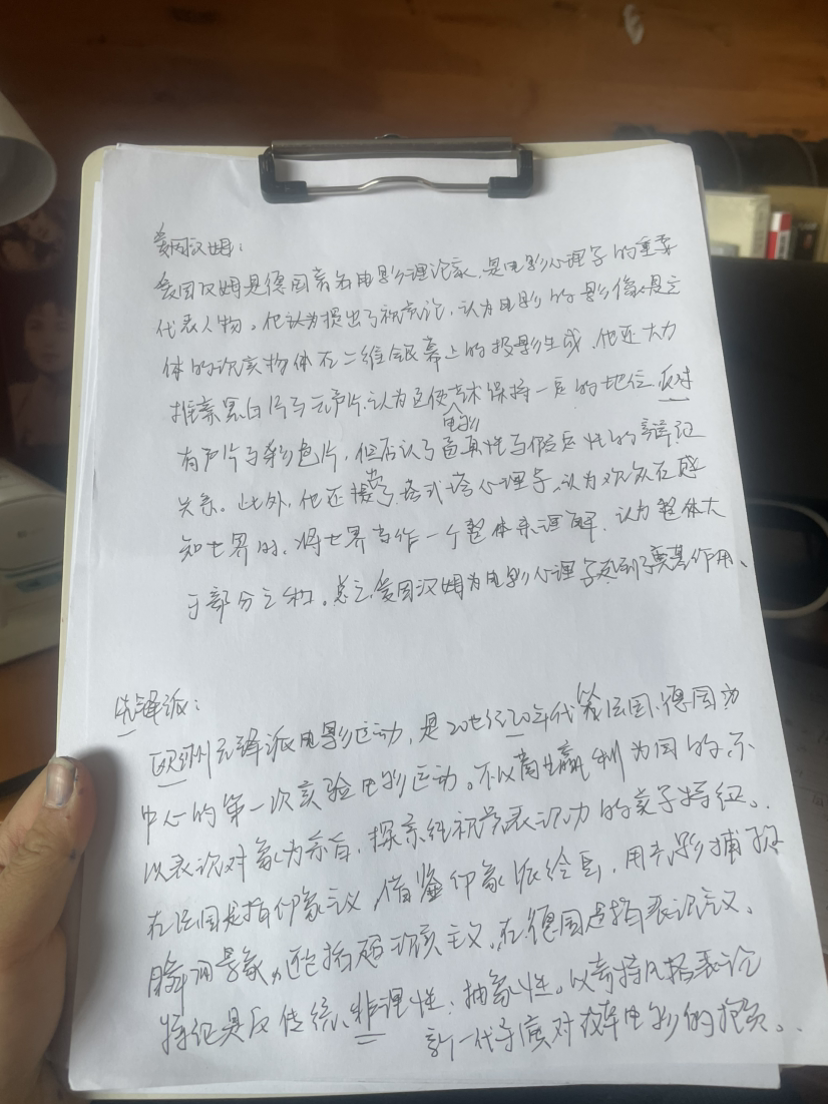 爱因汉姆：
爱因汉姆是德国著名电影理论家,是电影心理学的重要
代表人物。他认为提出了视觉论,认为电影的影像是立
体的现实物体在二维银幕上的投影生成,他还大力
推崇黑白片与无声片,认为这使电影艺术保持一定的地位,反对
有声片与彩色片,但后认了逼真性与假定性的辩证
关系。此外,他还提出了格式塔心理学,认为观众在感
知世界时,将世界当作一个整体来理解,认为整体大
于部分之和。总之,爱因汉姆为电影心理学起到了奠基作用。
先锋派：
欧洲先锋派电影运动,是20世纪20年代以法国、德国为
中心的第一次实验电影运动。不以商业赢利为目的,不
以表现对象为亦旨,探索纯视觉表现力的美学特征。
在法国是指印象主义,借鉴印象派绘画,用光影捕捉
瞬间景象,还包括超现实主义。在德国是指表现主义。
特征是反传统、非理性、抽象性。以奇特风格表
新一代导演对效率电影的抱负。